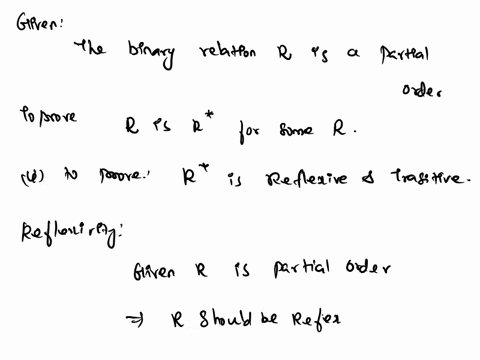 Given:
The binary relation R is a partial
order
To prove R is R* for some R.
(ie) to prove: R* is Reflexive & Trasitive.
Reflexivity:
Given R is partial order
⇒ R should be Refer